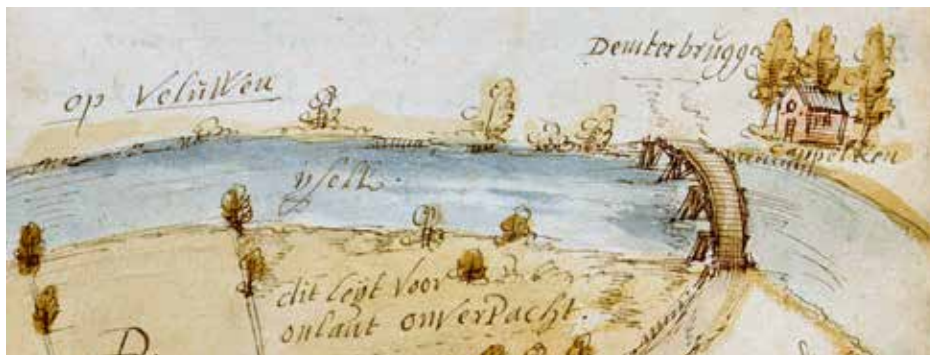 op Velúwen
Demterbrúgge
Cappelken
ÿsell.
dit leÿt voor
onlant onverpacht.
D